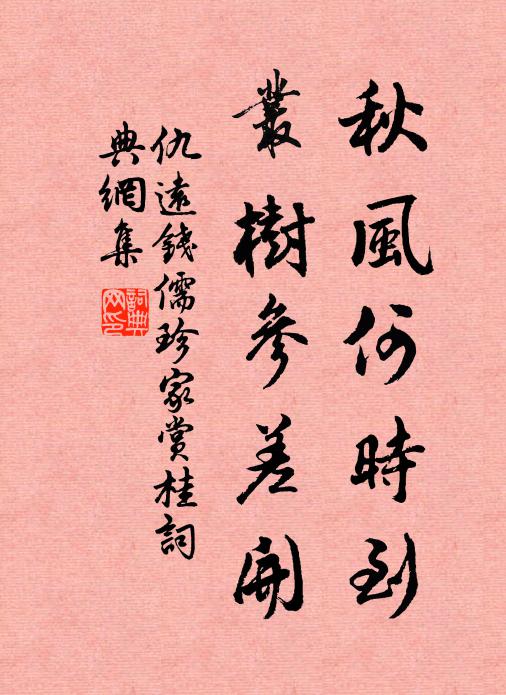 秋風何時到
叢樹參差開
仇遠錢儒珍家賞桂詞
典網集
詞典網印